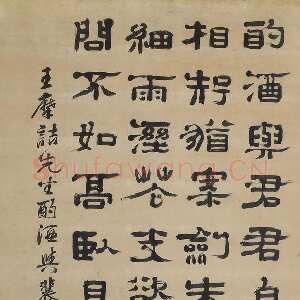 酌酒與君君自
相知猶案劍朱
細雨溼花支欲
問不如高臥且
王摩詰先生酌酒與裴
Shufawang.CN